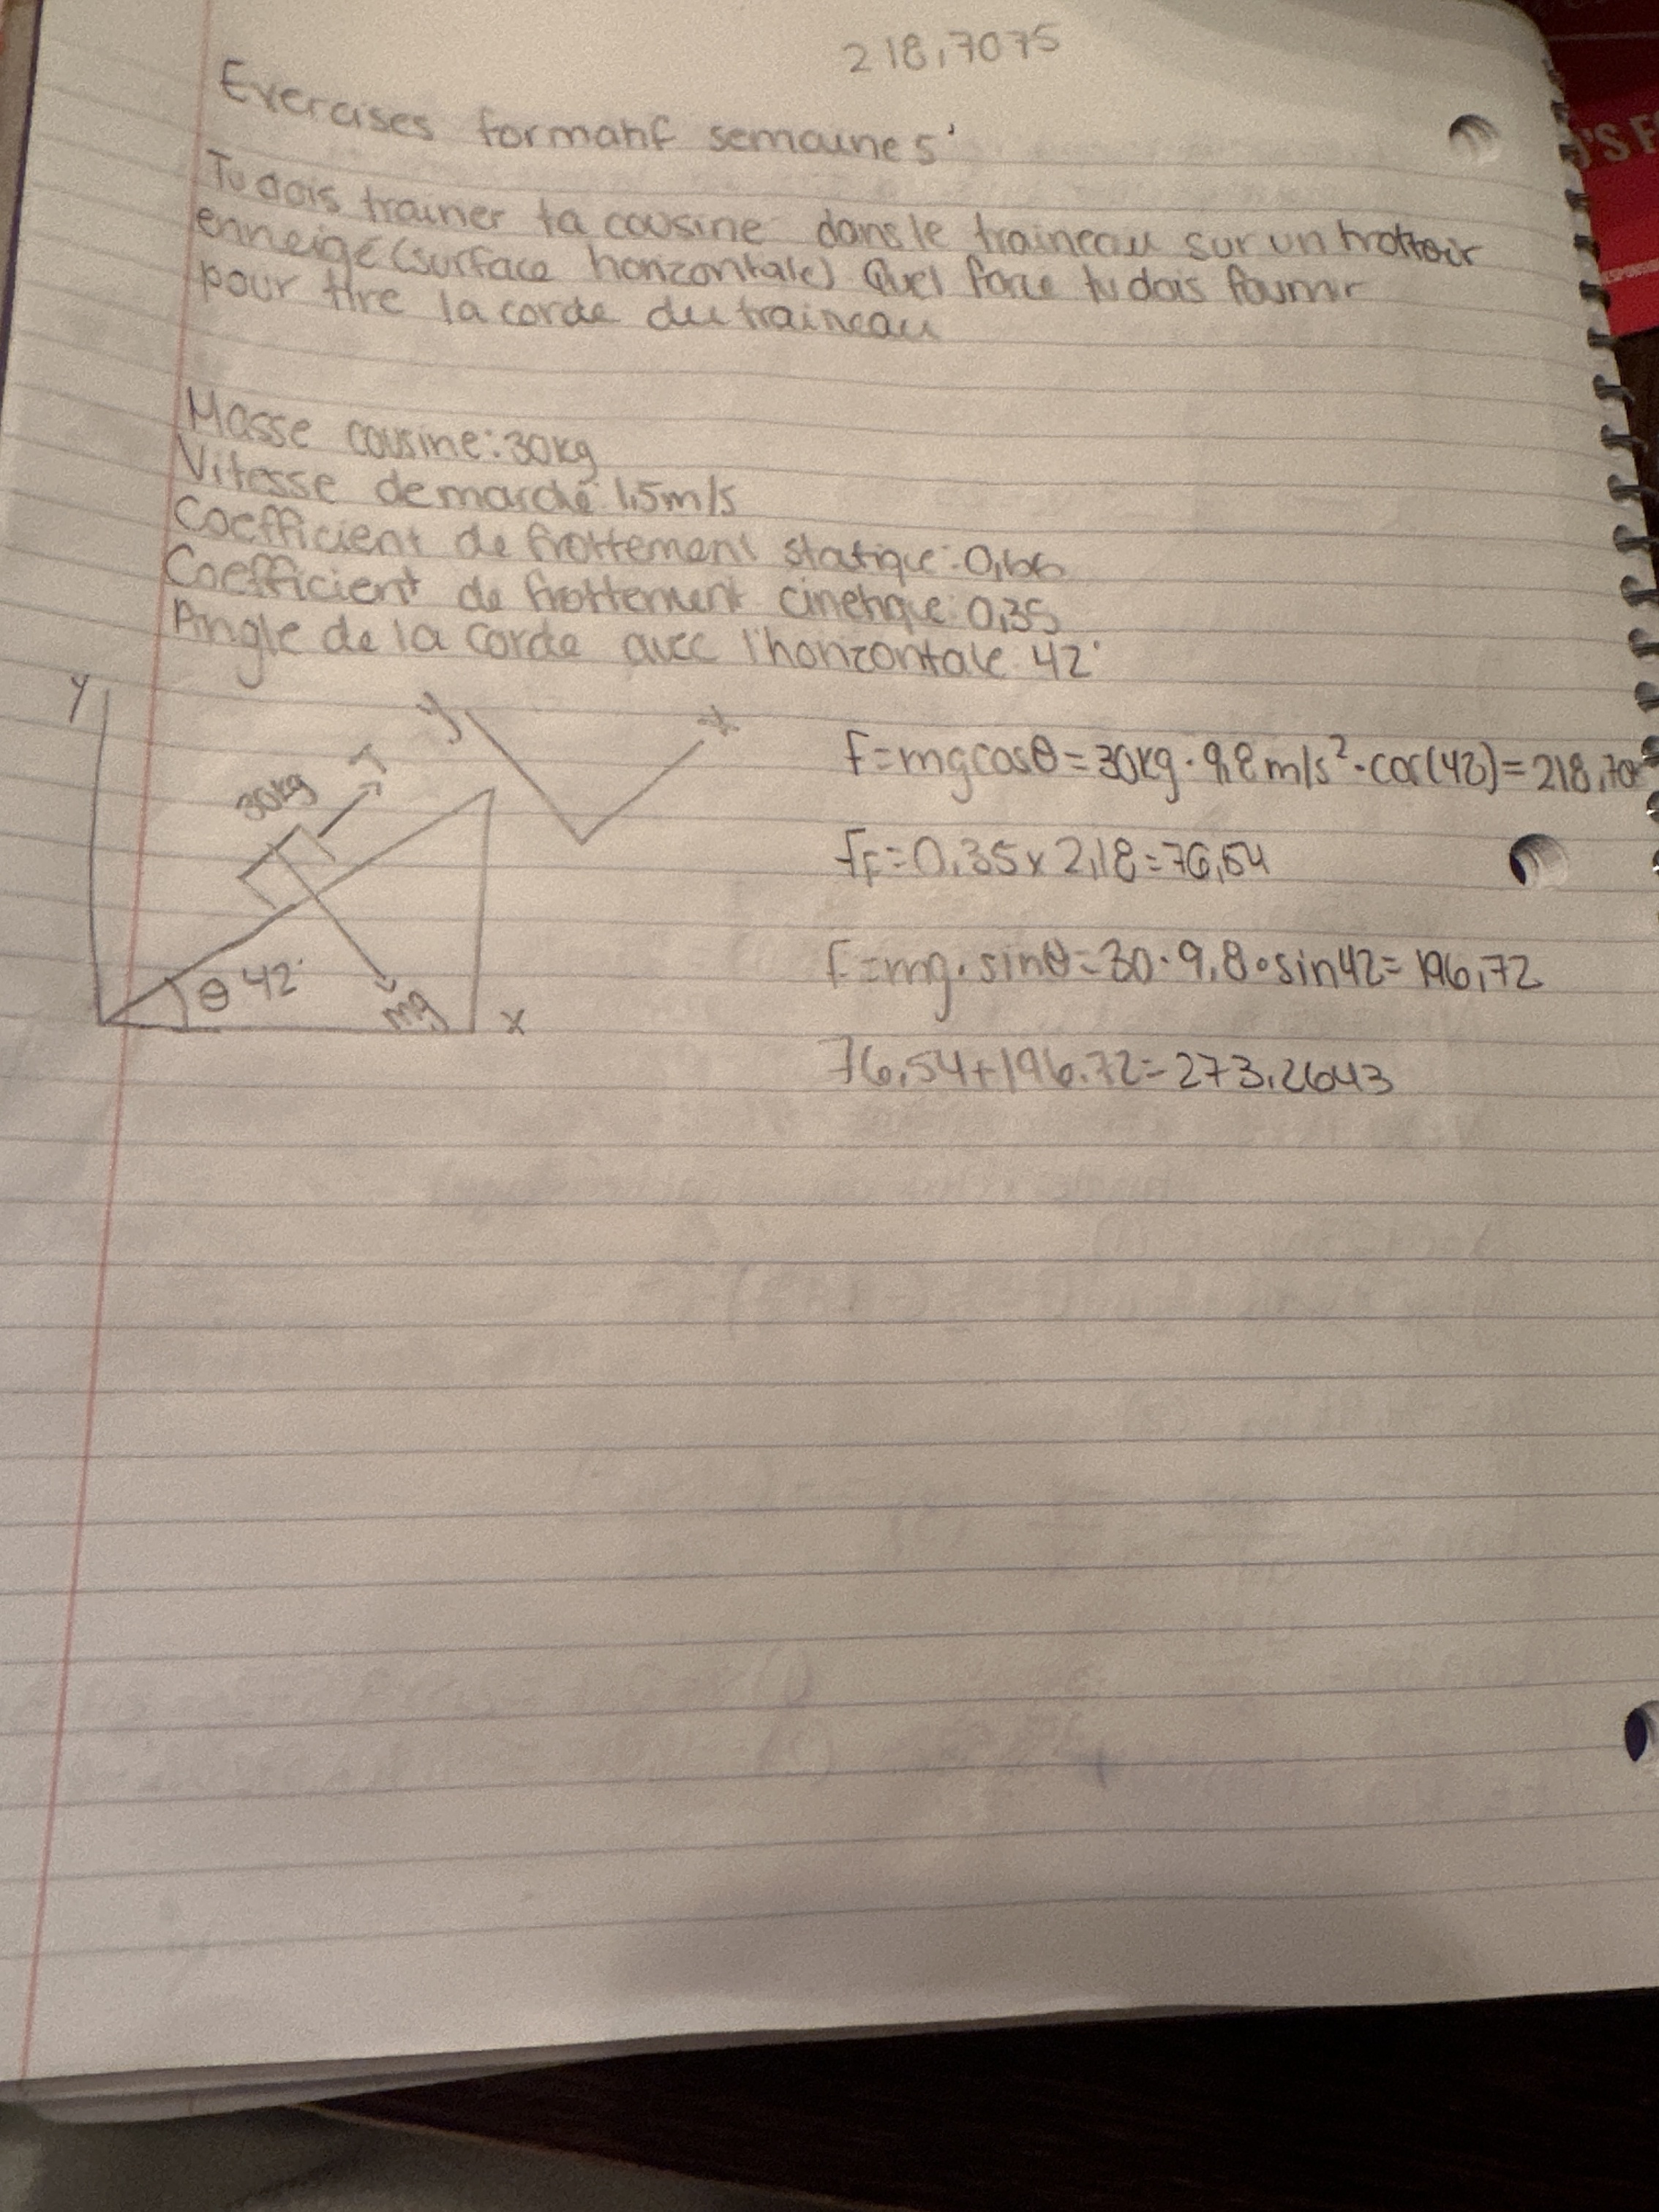 218,7075
Exercises formatif semaine 5
Tu dois trainer ta cousine dans le traineau sur un trottoir
enneigé (surface horizontale) Quel force tu dois fournir
pour tire la corde du traineau
Masse cousine: 30kg
Vitesse de marche: 1,5m/s
Coefficient de frottement statique: 0,66
Coefficient de frottement cinetique: 0,35
Angle de la corde avec l'horizontale 42°
y
y x
30kg T
θ 42°
mg
x
F=mgcosθ=30kg·9,8m/s²·cos(42)=218,70
Ff=0.35x2,18=76,54
F=mg·sinθ=30·9,8·sin42=196,72
76,54+196.72=273,2643
'S F